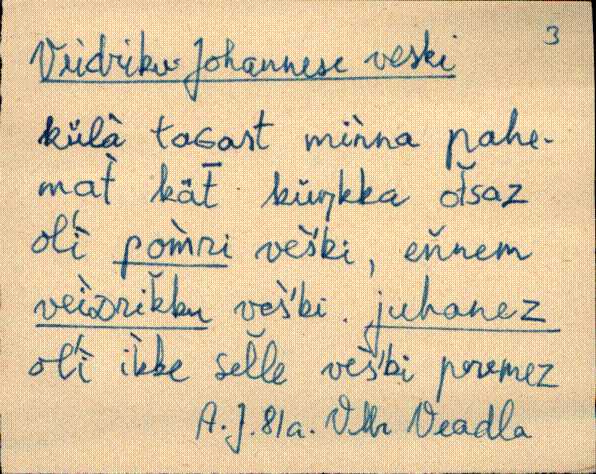 3
Vridriku-Johannese veski
külà taGast minna pahe-
mat̀ kät̄ küŋkka òtsaz
oĺì pom̀ri veš̀ki, eǹnem
veiᴅrik̀ku veš̀ki. juhanez
oĺì ik̀ke sel̀le veš̀ki peremez
A.J. 81a. VMr Veadla